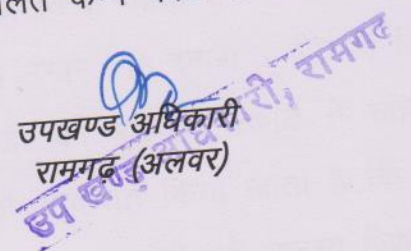 उपखण्ड अधिकारी
रामगढ़ (अलवर)
उप खण्ड अधिकारी, रामगढ